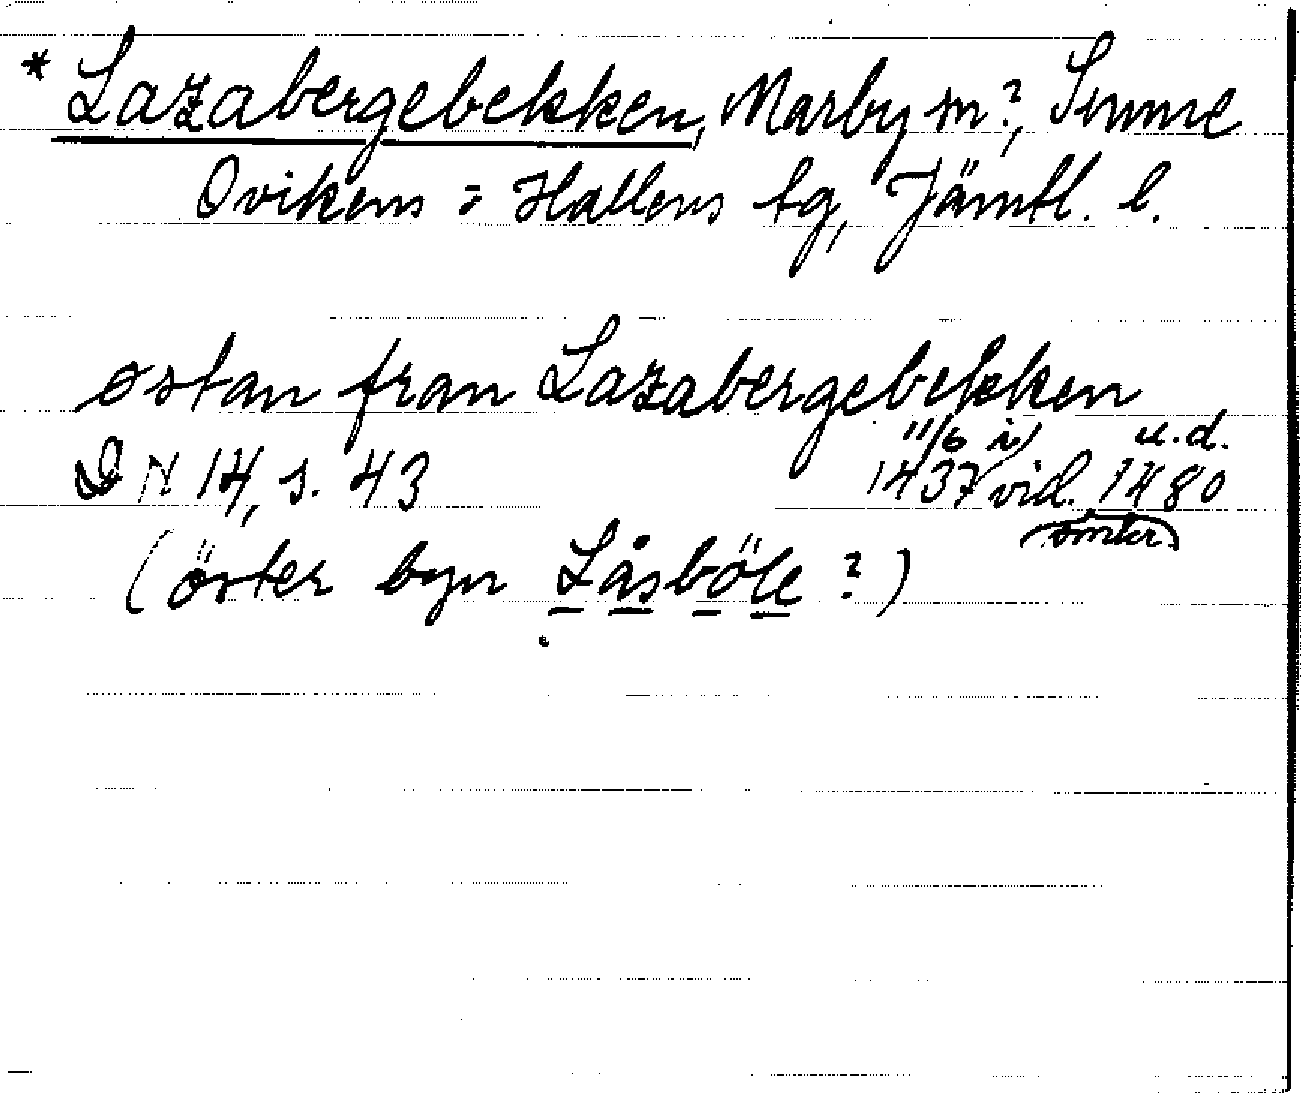 * Lazabergebekken, Marby sn?, Sunne
Ovikens = Hallens tg, Jämtl. l.
østan fran Lazabergebekken
11/6 i u.d.
DN 14, s. 43 1437 vid. 1480
(öster byn Låsböle?)